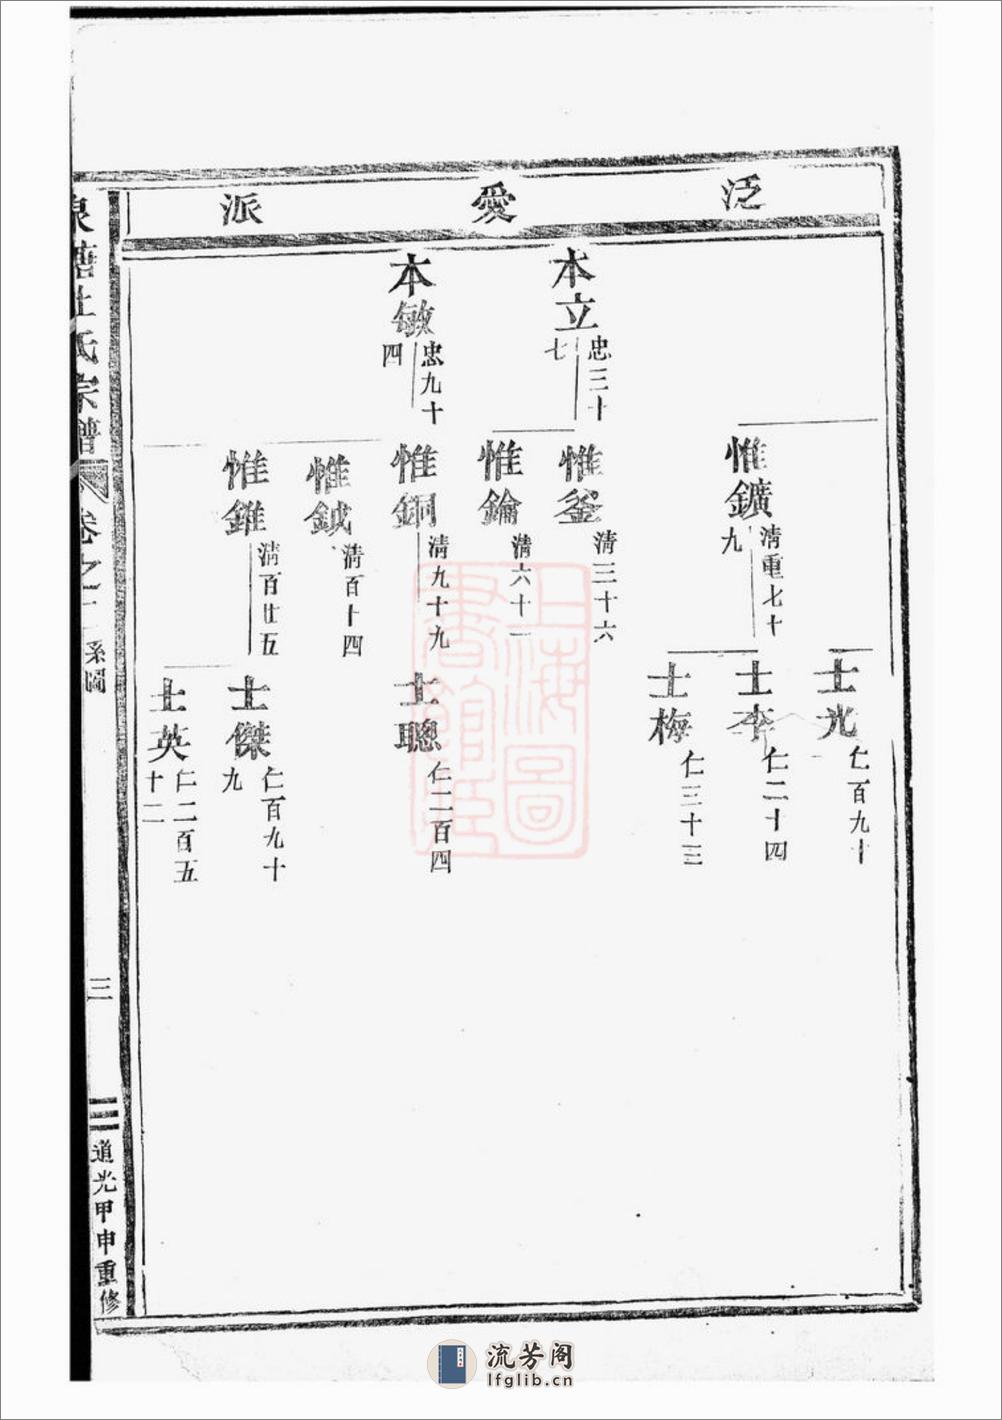 泛愛派
本立
忠三十七
本敏
忠九十四
惟鑛
清重七十九
惟釜
清三十六
惟鑰
清六十一
惟銅
清九十九
惟鉞
清百十四
惟錐
清百廿五
士光
仁百九十一
士李
仁二十四
士梅
仁三十三
士聰
仁二百四
士傑
仁百九十九
士英
仁二百五十二
氏宗譜
卷之二
系圖
三
道光甲申重修
上海圖
書館藏
流芳阁
lfglib.cn